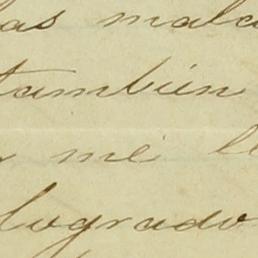 las malo
también
me lle
logrado